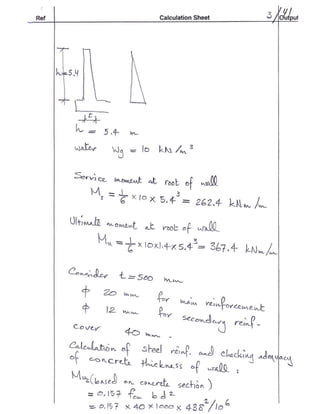 Ref Calculation Sheet 3/41 Output
h=5.4
t
h = 5.4 m
water Wg = 10 kN/m³
Service moment at root of wall
Ms = 1/6 × 10 × 5.4³ = 262.4 kNm/m
Ultimate moment at root of wall
Mu = 1/6 × 10×1.4×5.4³ = 367.4 kNm/m
Consider t = 500 mm
ϕ 20 mm for main reinforcement
ϕ 12 mm for secondary reinf.
cover 40 mm.
Calculation of steel reinf. and checking adequacy
of concrete thickness of wall :
Mus (based on concrete section)
= 0.157 fcu b d²
= 0.157 × 40 × 1000 × 438²/10⁶